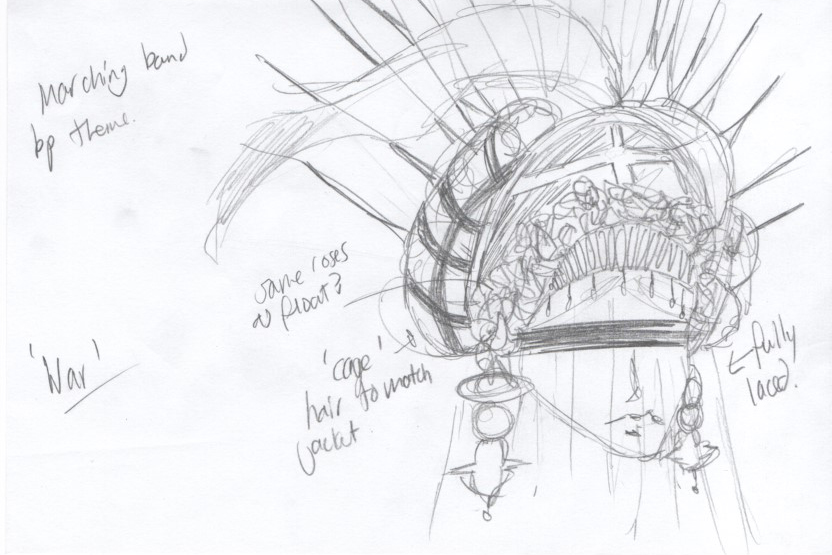 Marching band
bp theme.
same roses
as float?
'cage'
hair to match
jacket.
'War'
←fully
laced.